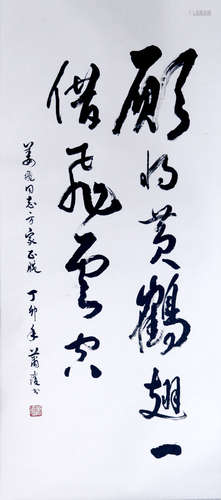 願將黄鶴翅一
借飛雲空
姜飛同志方家正腕
丁卯年蕭瓊書